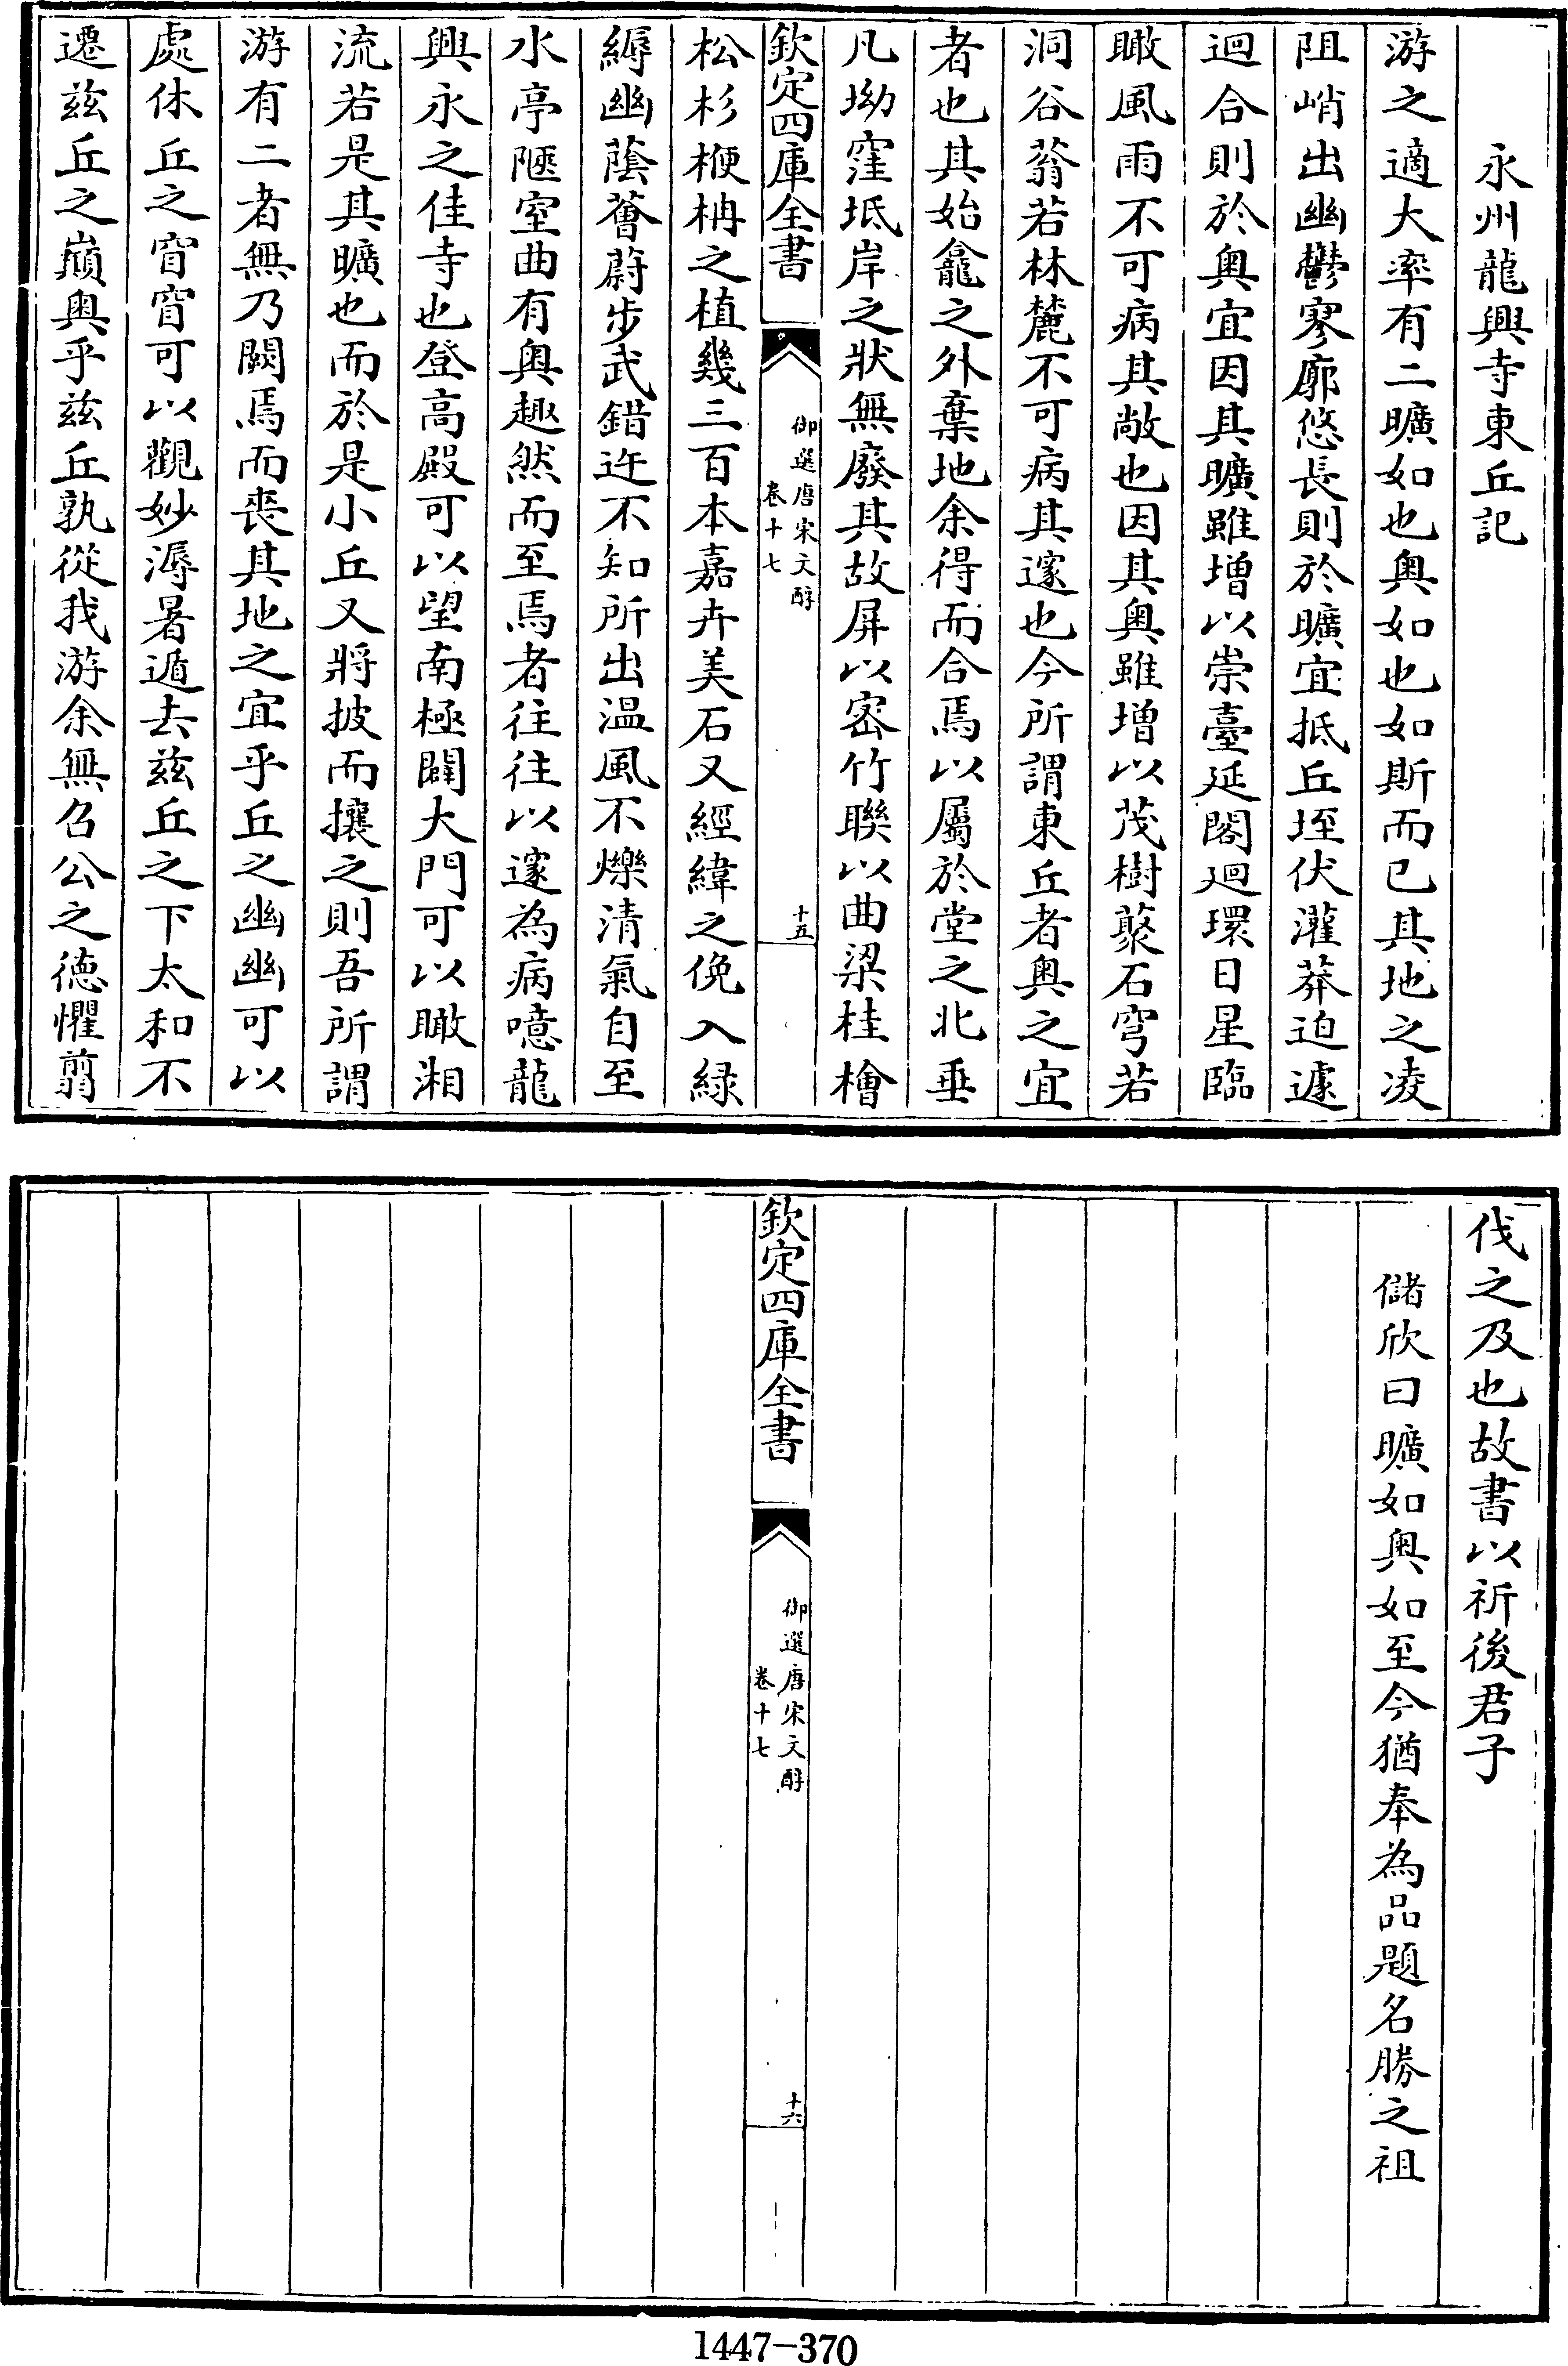 永州龍興寺東丘記
游之適大率有二曠如也奥如也如斯而已其地之凌
阻峭出幽鬱寥廓悠長則於曠宜抵丘垤伏灌莽迫遽
迴合則於奥宜因其曠雖增以崇臺延閣廻環日星臨
瞰風雨不可病其敞也因其奥雖增以茂樹藂石穹若
洞谷蓊若林麓不可病其邃也今所謂東丘者奥之宜
者也其始龕之外棄地余得而合焉以屬於堂之北垂
凡坳窪坻岸之狀無廢其故屏以密竹聯以曲梁桂檜
欽定四庫全書
御選唐宋文醇
卷十七
十五
松杉楩柟之植幾三百本嘉卉美石又經緯之俛入緑
縟幽蔭薈蔚步武錯迕不知所出温風不爍清氣自至
水亭陿室曲有奥趣然而至焉者往往以邃為病噫龍
興永之佳寺也登高殿可以望南極闢大門可以瞰湘
流若是其曠也而於是小丘又將披而攘之則吾所謂
游有二者無乃闕焉而喪其地之宜乎丘之幽幽可以
處休丘之窅窅可以觀妙溽暑遁去兹丘之下太和不
遷兹丘之巔奥乎兹丘孰從我游余無召公之德懼翦
伐之及也故書以祈後君子
儲欣曰曠如奥如至今猶奉為品題名勝之祖
欽定四庫全書
御選唐宋文醇
卷十七
十六
1447-370